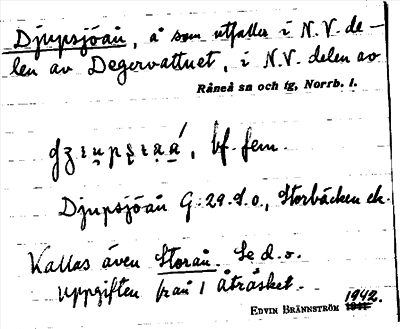 Djupsjöån, å som utfaller i N.V. de-
len av Degervattnet, i N.V. delen av
Råneå sn och tg, Norrb. l.
bf. fem.
Djupsjöån G: 29. d.o., Storbäcken ek.
Kallas även Storån. Se d.o.
Uppgiften från 1 Åträsket.
1942.
EDVIN BRÄNNSTRÖM 1941.